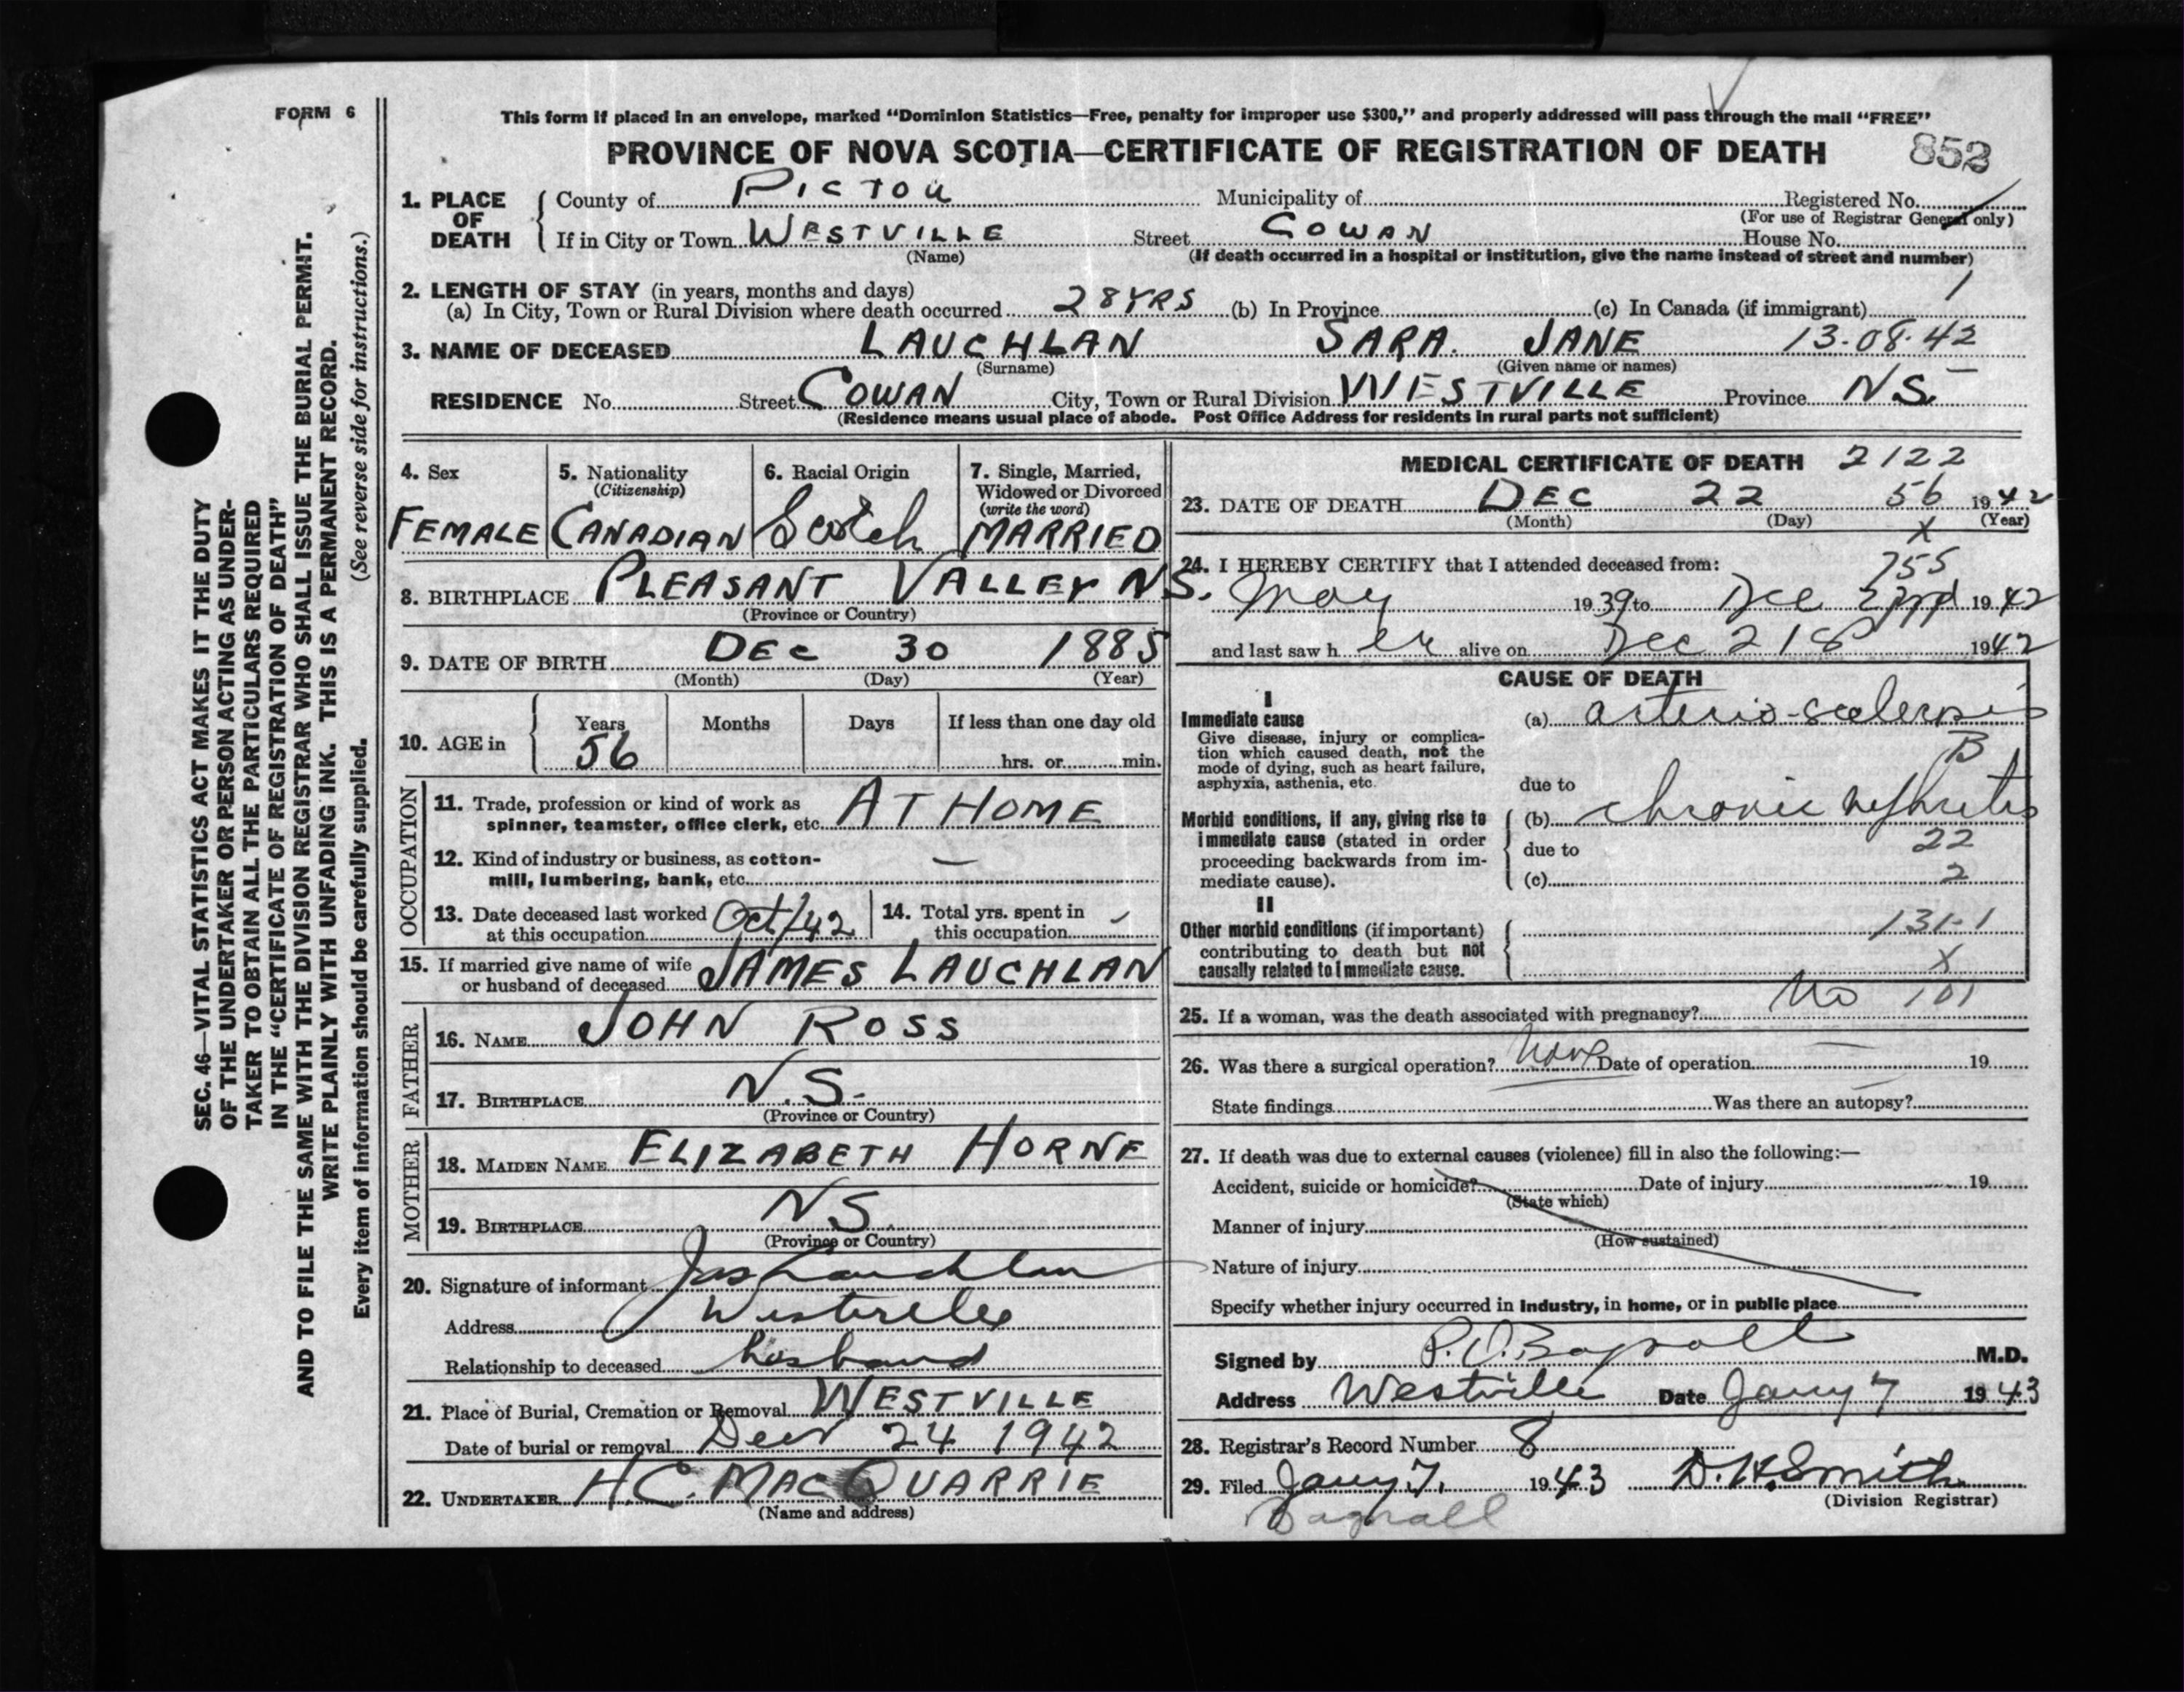 FORM 6
This form if placed in an envelope, marked "Dominion Statistics—Free, penalty for improper use $300," and properly addressed will pass through the mail "FREE"
PROVINCE OF NOVA SCOTIA—CERTIFICATE OF REGISTRATION OF DEATH 852
1. PLACE OF DEATH
County of PICTOU Municipality of Registered No.
(For use of Registrar General only)
If in City or Town WESTVILLE Street COWAN House No.
(Name)
(If death occurred in a hospital or institution, give the name instead of street and number)
2. LENGTH OF STAY (in years, months and days) 1
(a) In City, Town or Rural Division where death occurred 28 YRS (b) In Province (c) In Canada (if immigrant)
3. NAME OF DECEASED LAUCHLAN SARA. JANE 13-08-42
(Surname) (Given name or names)
RESIDENCE No. Street COWAN City, Town or Rural Division WESTVILLE Province N.S.
(Residence means usual place of abode. Post Office Address for residents in rural parts not sufficient)
4. Sex
FEMALE
5. Nationality
(Citizenship)
CANADIAN
6. Racial Origin
Scotch
7. Single, Married,
Widowed or Divorced
(write the word)
MARRIED
8. BIRTHPLACE PLEASANT VALLEY N.S.
(Province or Country)
9. DATE OF BIRTH DEC 30 1885
(Month) (Day) (Year)
10. AGE in
Years Months Days If less than one day old
56 hrs. or min.
OCCUPATION
11. Trade, profession or kind of work as
spinner, teamster, office clerk, etc. AT HOME
12. Kind of industry or business, as cotton-
mill, lumbering, bank, etc. —
13. Date deceased last worked
at this occupation Oct/42
14. Total yrs. spent in
this occupation
15. If married give name of wife
or husband of deceased JAMES LAUCHLAN
FATHER
16. NAME JOHN ROSS
17. BIRTHPLACE N.S.
(Province or Country)
MOTHER
18. MAIDEN NAME ELIZABETH HORNE
19. BIRTHPLACE N.S.
(Province or Country)
20. Signature of informant Jas Lauchlan
Address Westville
Relationship to deceased husband
21. Place of Burial, Cremation or Removal WESTVILLE
Date of burial or removal Dec 24 1942
22. UNDERTAKER H.C. MACQUARRIE
(Name and address)
MEDICAL CERTIFICATE OF DEATH 2122
23. DATE OF DEATH DEC 22 56 1942
(Month) (Day) X (Year)
24. I HEREBY CERTIFY that I attended deceased from: 755
May 1939 to Dec 22nd 1942
and last saw her alive on Dec 21 1942
CAUSE OF DEATH
I
Immediate cause
Give disease, injury or complica-
tion which caused death, not the
mode of dying, such as heart failure,
asphyxia, asthenia, etc.
(a) arterio-sclerosis
B
due to
Morbid conditions, if any, giving rise to
immediate cause (stated in order
proceeding backwards from im-
mediate cause).
(b) chronic nephritis
due to 22
(c) 2
II
Other morbid conditions (if important)
contributing to death but not
causally related to immediate cause.
131-1
X
25. If a woman, was the death associated with pregnancy? No 101
26. Was there a surgical operation? None Date of operation — 19
State findings Was there an autopsy? —
27. If death was due to external causes (violence) fill in also the following:—
Accident, suicide or homicide? Date of injury 19
(State which)
Manner of injury
(How sustained)
Nature of injury
Specify whether injury occurred in industry, in home, or in public place
Signed by Bagnall M.D.
Address Westville Date Jany 7 1943
28. Registrar's Record Number 8
29. Filed Jany 7. 1943 D.H. Smith
(Division Registrar)
Bagnall
SEC. 46—VITAL STATISTICS ACT MAKES IT THE DUTY
OF THE UNDERTAKER OR PERSON ACTING AS UNDER-
TAKER TO OBTAIN ALL THE PARTICULARS REQUIRED
IN THE "CERTIFICATE OF REGISTRATION OF DEATH"
AND TO FILE THE SAME WITH THE DIVISION REGISTRAR WHO SHALL ISSUE THE BURIAL PERMIT.
WRITE PLAINLY WITH UNFADING INK. THIS IS A PERMANENT RECORD.
Every item of information should be carefully supplied. (See reverse side for instructions.)